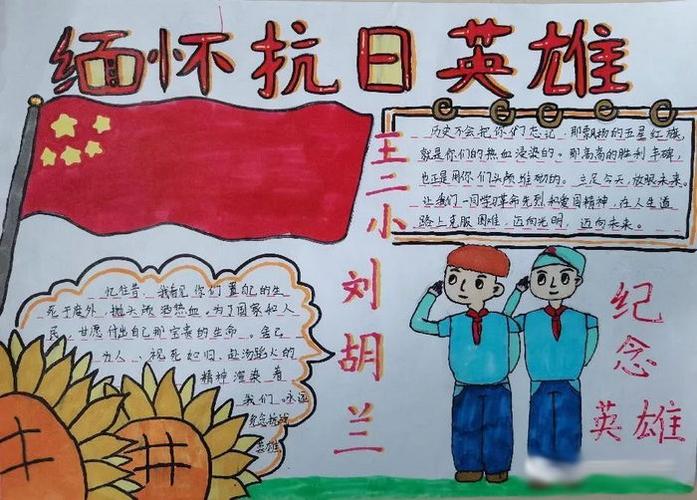 缅怀抗日英雄
历史不会把你们忘记，那飘扬的五星红旗，
就是你们的热血浸染的。那高高的胜利丰碑，
也正是用你们头颅堆砌的。立足今天，放眼未来。
让我们一同学习革命先烈和爱国精神，在人生道
路上克服困难，迈向光明，迈向未来。
王二小
刘胡兰
忆往昔，我看见你们置自己的生
死于度外，抛头颅洒热血。为了国家和人
民，甘愿付出自己那宝贵的生命。舍己
为人、视死如归、赴汤蹈火的
精神渲染着
我们。永远
纪念抗战
英雄
纪念
英雄